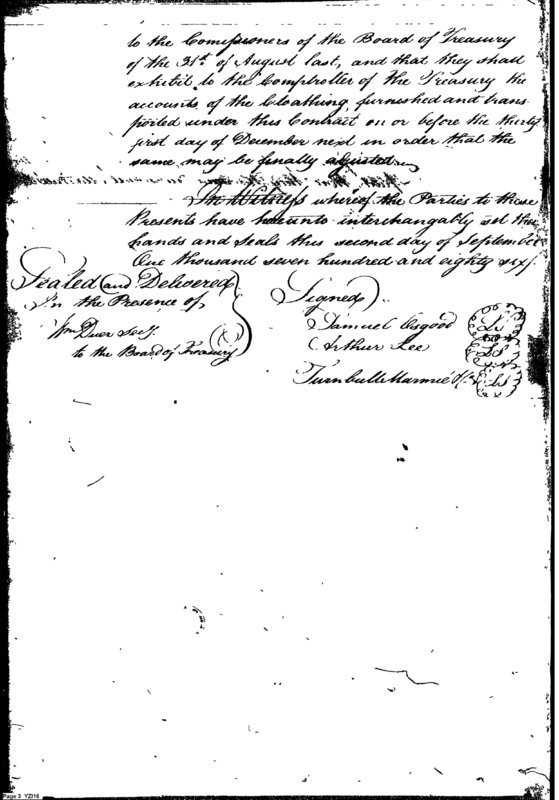 to the Commissioners of the Board of Treasury
of the 31st of August last, and that they shall
exhibit to the Comptroller of the Treasury the
accounts of the Cloathing furnished and trans
ported under this Contract on or before the thirty
first day of December next in order that the
same may be finally adjusted
In Witness whereof the Parties to these
Presents have hereunto interchangably set their
hands and Seals this second day of September
One thousand seven hundred and eighty six
Sealed and Delivered
In the Presence of
Wm Duer Secy.
to the Board of Treasury
Signed
Samuel Osgood LS
Arthur Lee LS
Turnbull Marmie &Co LS
Page 3 YZI16